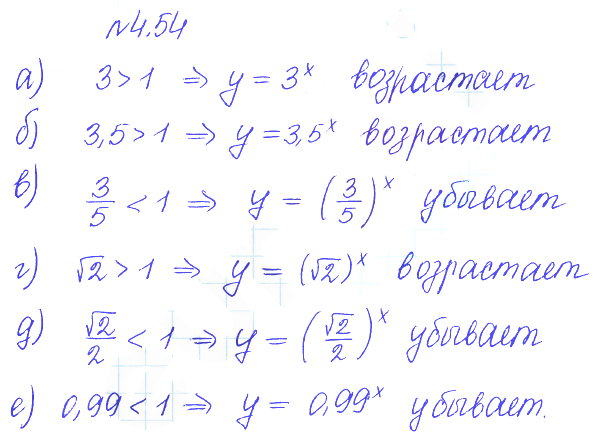 №4.54
а) 3 > 1 ⇒ y = 3^x возрастает
б) 3,5 > 1 ⇒ y = 3,5^x возрастает
в) 3/5 < 1 ⇒ y = (3/5)^x убывает
г) √2 > 1 ⇒ y = (√2)^x возрастает
д) √2/2 < 1 ⇒ y = (√2/2)^x убывает
е) 0,99 < 1 ⇒ y = 0,99^x убывает.